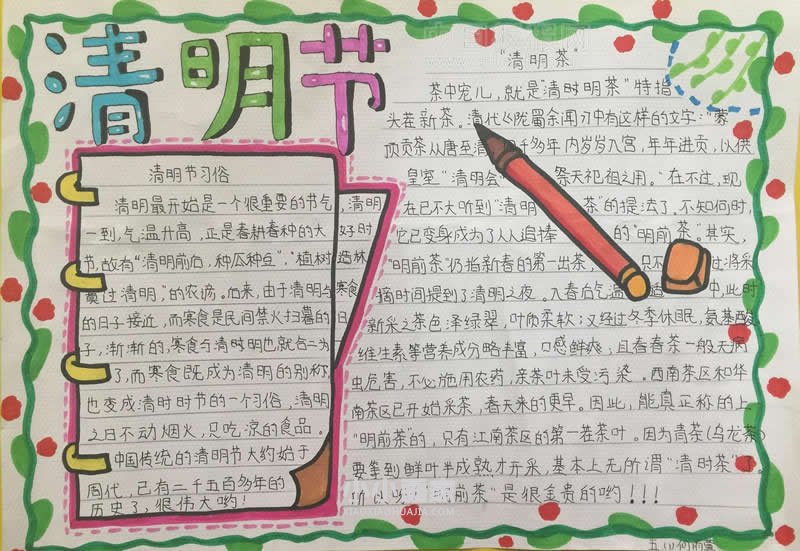 清明节
清明节习俗
清明最开始是一个很重要的节气，清明
一到，气温升高，正是春耕春种的大好时
节，故有“清明前后，种瓜种豆”，“植树造林，
莫过清明，”的农谚。后来，由于清明与寒食
的日子接近，而寒食是民间禁火扫墓的日
子，渐渐的，寒食与清时明也就合二为
了，而寒食既成为清明的别称，
也变成清时时节的一个习俗，清明
之日不动烟火，只吃凉的食品。
中国传统的清明节大约始于
周代，已有二千五百多年的
历史了，很伟大哟！
“清明茶”
茶中宠儿，就是“清时明茶”特指
头茬新茶。清代《陇蜀余闻》中有这样的文字：“蒙
顶贡茶从唐至清 千多年内岁岁入宫，年年进贡，以供
皇室“清明会” 祭天祀祖之用。”在不过，现
在已不大听到“清明 茶”的提法了。不知何时，
它已变身成为了人人追捧 的“明前茶”。其实，
“明前茶”仍指新春的第一出茶， 只不 过将采
摘时间提到了清明之夜。入春后气温 中，此时
新采之茶色泽绿翠，叶质柔软；又经过冬季休眠，氨基酸
维生素等营养成分略丰富，口感鲜爽；且春春茶一般无病
虫危害，不必施用农药，亲茶叶未受污染。西南茶区和华
南茶区已开始采茶，春天来的更早。因此，能真正称的上
“明前茶”的，只有江南茶区的第一茬茶叶。因为青茶（乌龙茶）
要等到鲜叶半成熟才开采，基本上无所谓“清时茶”了。
所以 明前茶”是很金贵的哟！！！
XIAOXIAOHUAJIA.COM
五（1）何